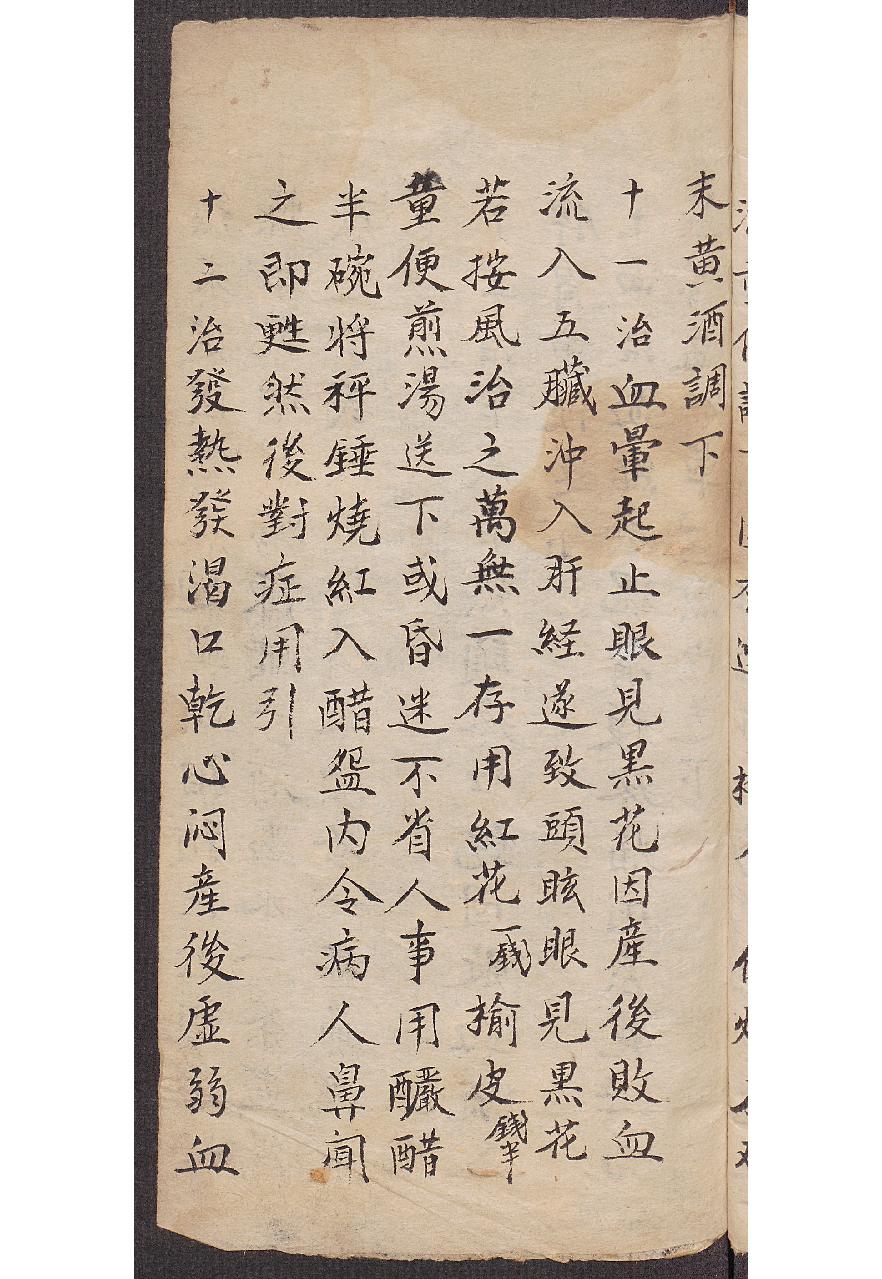 末黄酒調下
十一治血暈起止眼見黒花因產後敗血
流入五臟冲入肝経遂致頭眩眼見黒花
若按風治之萬無一存用紅花一錢榆皮錢半
童便煎湯送下或昏迷不省人事用釅醋
半碗将秤錘燒紅入醋盌内令病人鼻闻
之即甦然後對症用引
十二治發熱發渴口乾心闷產後虛弱血